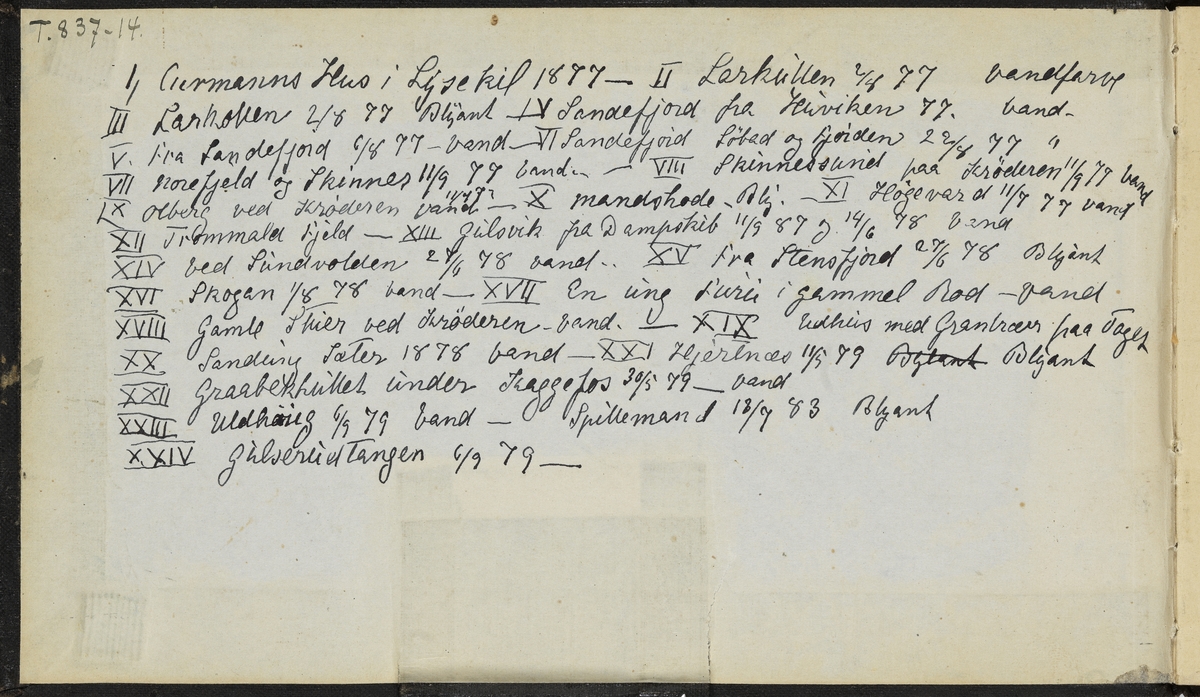 T. 837-14.
I, Curmanns Hus i Lysekil 1877 — II Larkullen 2/8 77 vandfarve
III Larkollen 2/8 77 Blyant — IV Sandefjord fra Huviken 77. vand-
V. Fra Sandefjord 6/8 77 - vand - VI Sandefjord Söbad og Fjorden 22/8 77 "
VII Norefjeld og Skinnes 11/9 77 vand.. — VIII Skinnessund paa Kröderen 11/9 77 vand
IX Olberg ved Kröderen vand 11/9 77 — X mandshode - Bly. — XI Högevard 11/7 77 vand
XII Trommald Fjeld — XIII Gulsvik fra Dampskib 11/9 87 og 14/6 78 vand
XIV ved Sundvolden 27/6 78 vand.. XV Fra Stensfjord 27/6 78 Blyant
XVI Skogan 1/8 78 vand — XVII En ung Furu i gammel Rod - vand
XVIII Gamle Skier ved Kröderen - vand. — XIX Udhus med Grantrær paa Taget
XX Sandung Sæter 1878 vand — XXI Hjertnæs 11/5 79 Blyant Blyant
XXII Graabekhullet under Kaggefos 30/5 79 — vand
XXIII Uldhaug 6/9 79 vand — Spillemand 18/7 83 Blyant
XXIV Gulserudtangen 6/9 79 —